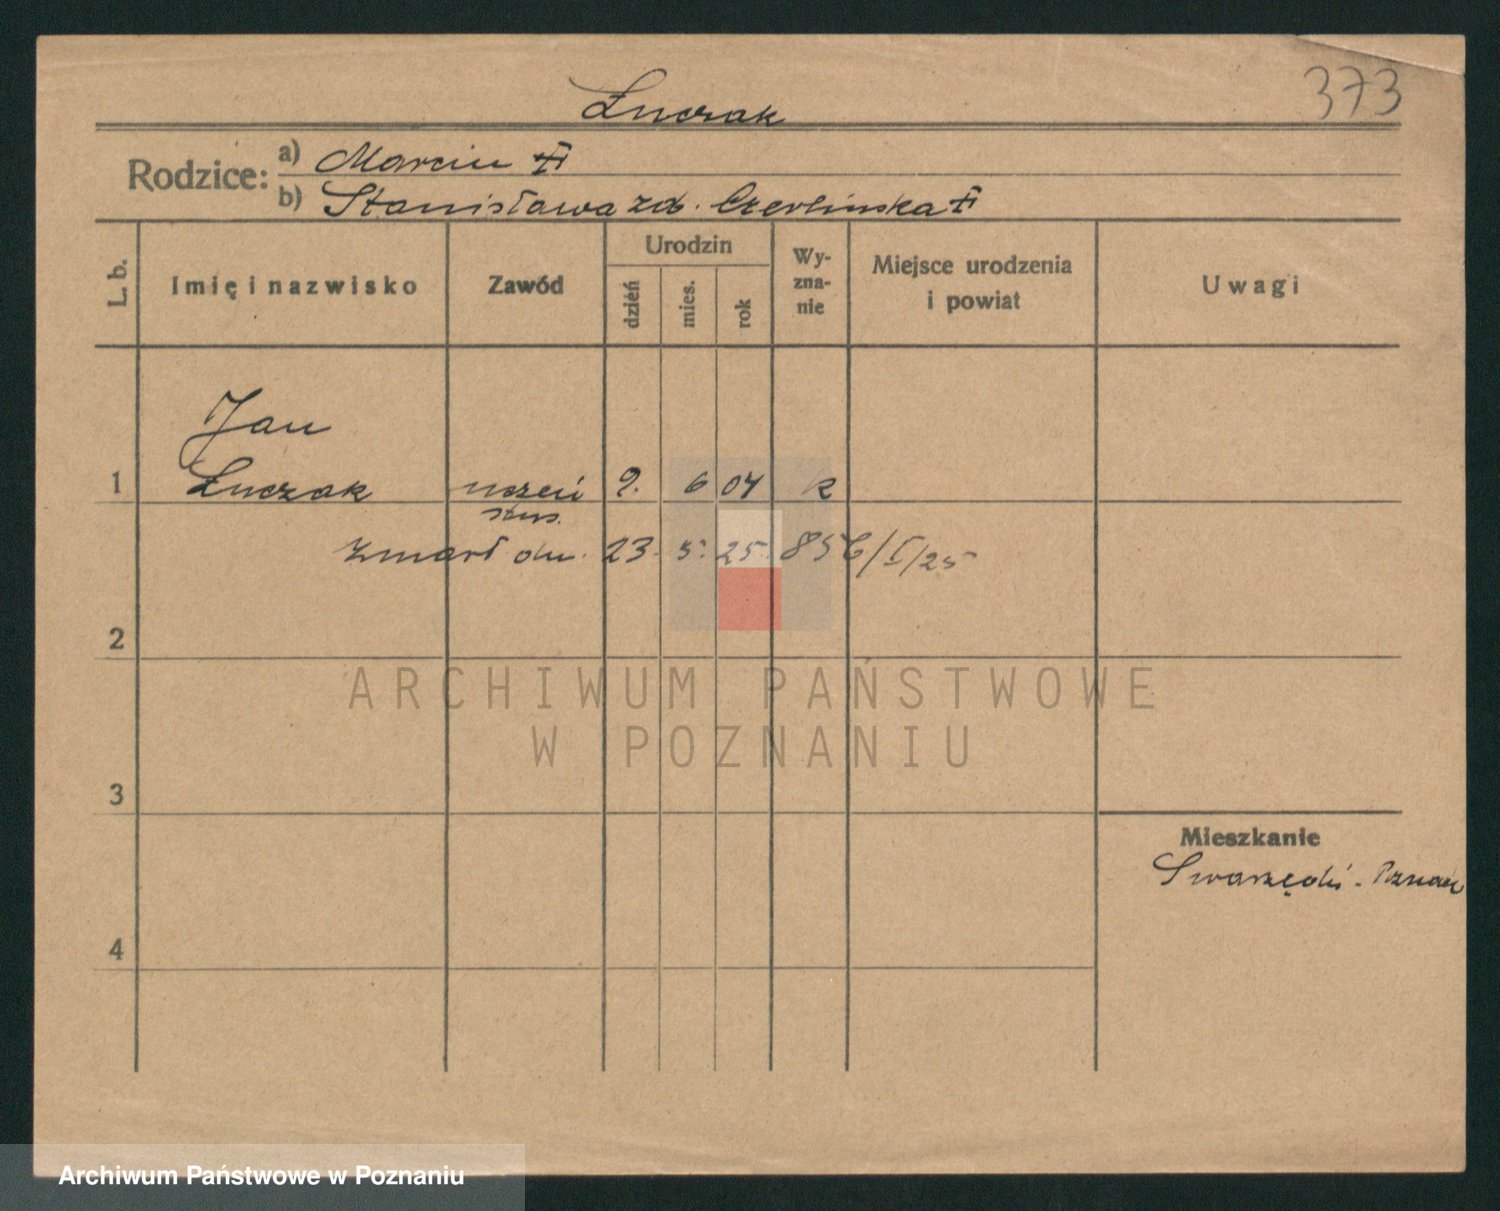 373
Łuczak
Rodzice: a) Marcin
b) Stanisława zd. Czerlińska
L. b.
Imię i nazwisko
Zawód
Urodzin
dzień
mies.
rok
Wy-
zna-
nie
Miejsce urodzenia
i powiat
Uwagi
Jan
1 Łuczak uczeń 9. 6 04 k
zmarł dn. 23. 5. 25. 856/I/25
2
ARCHIWUM PAŃSTWOWE
W POZNANIU
3
Mieszkanie
4
Archiwum Państwowe w Poznaniu